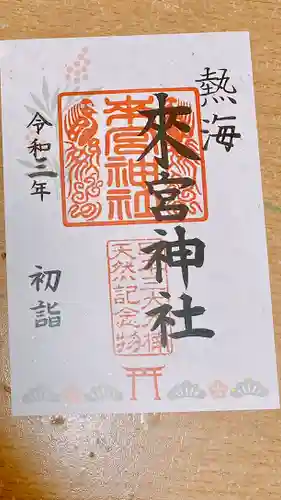 熱海
來宮神社
令和三年
初詣
來宮神社
天然記念物